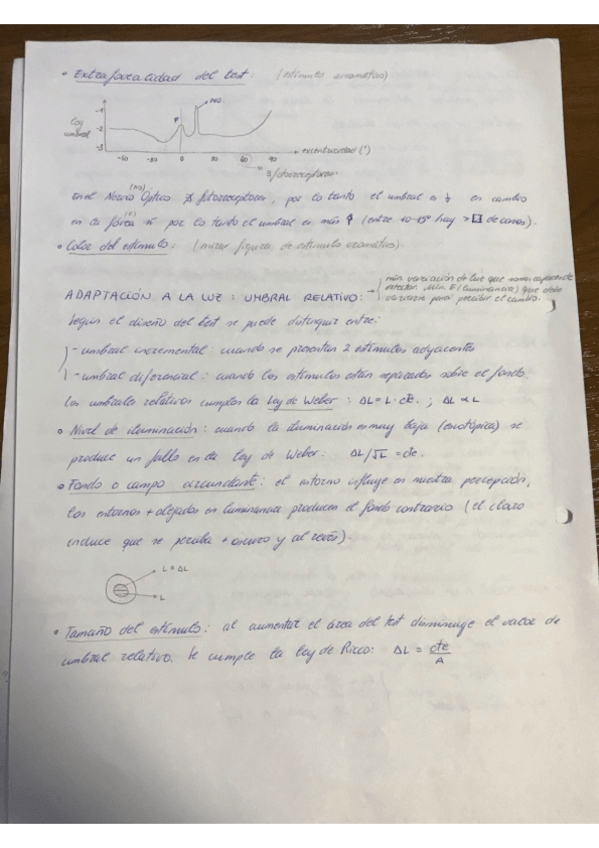 • Extrafovealidad del test: (estímulo acromático)
log umbral
-1
-2
-3
F
NO.
-50 -30 0 30 60 90
excentricidad (º)
∄ fotorreceptores
(NO)
En el Nervio Óptico ∄ fotorreceptores, por lo tanto el umbral es ↑, en cambio
(F)
en la fóvea por lo tanto el umbral es más (entre 10-15º hay > de conos).
• Color del estímulo: (mirar figura de estímulo acromático).
ADAPTACIÓN A LA LUZ: UMBRAL RELATIVO: →
variación de luz que somos capaces de
detectar. Mín. E (luminancia) que debe
variarse para percibir el cambio.
Según el diseño del test se puede distinguir entre:
- umbral incremental: cuando se presentan 2 estímulos adyacentes
- umbral diferencial: cuando los estímulos están separados sobre el fondo.
Los umbrales relativos cumplen la Ley de Weber: ΔL = L · cte. ; ΔL ∝ L
• Nivel de iluminación: cuando la iluminación es muy baja (escotópica) se
produce un fallo en la ley de Weber: ΔL/√L = cte.
• Fondo o campo circundante: el entorno influye en nuestra percepción,
los entornos + alejados en luminancia producen el fondo contrario (el claro
induce que se perciba + oscuro y al revés).
L + ΔL
L
• Tamaño del estímulo: al aumentar el área del test disminuye el valor de
umbral relativo. Se cumple la ley de Ricco: ΔL = cte/A